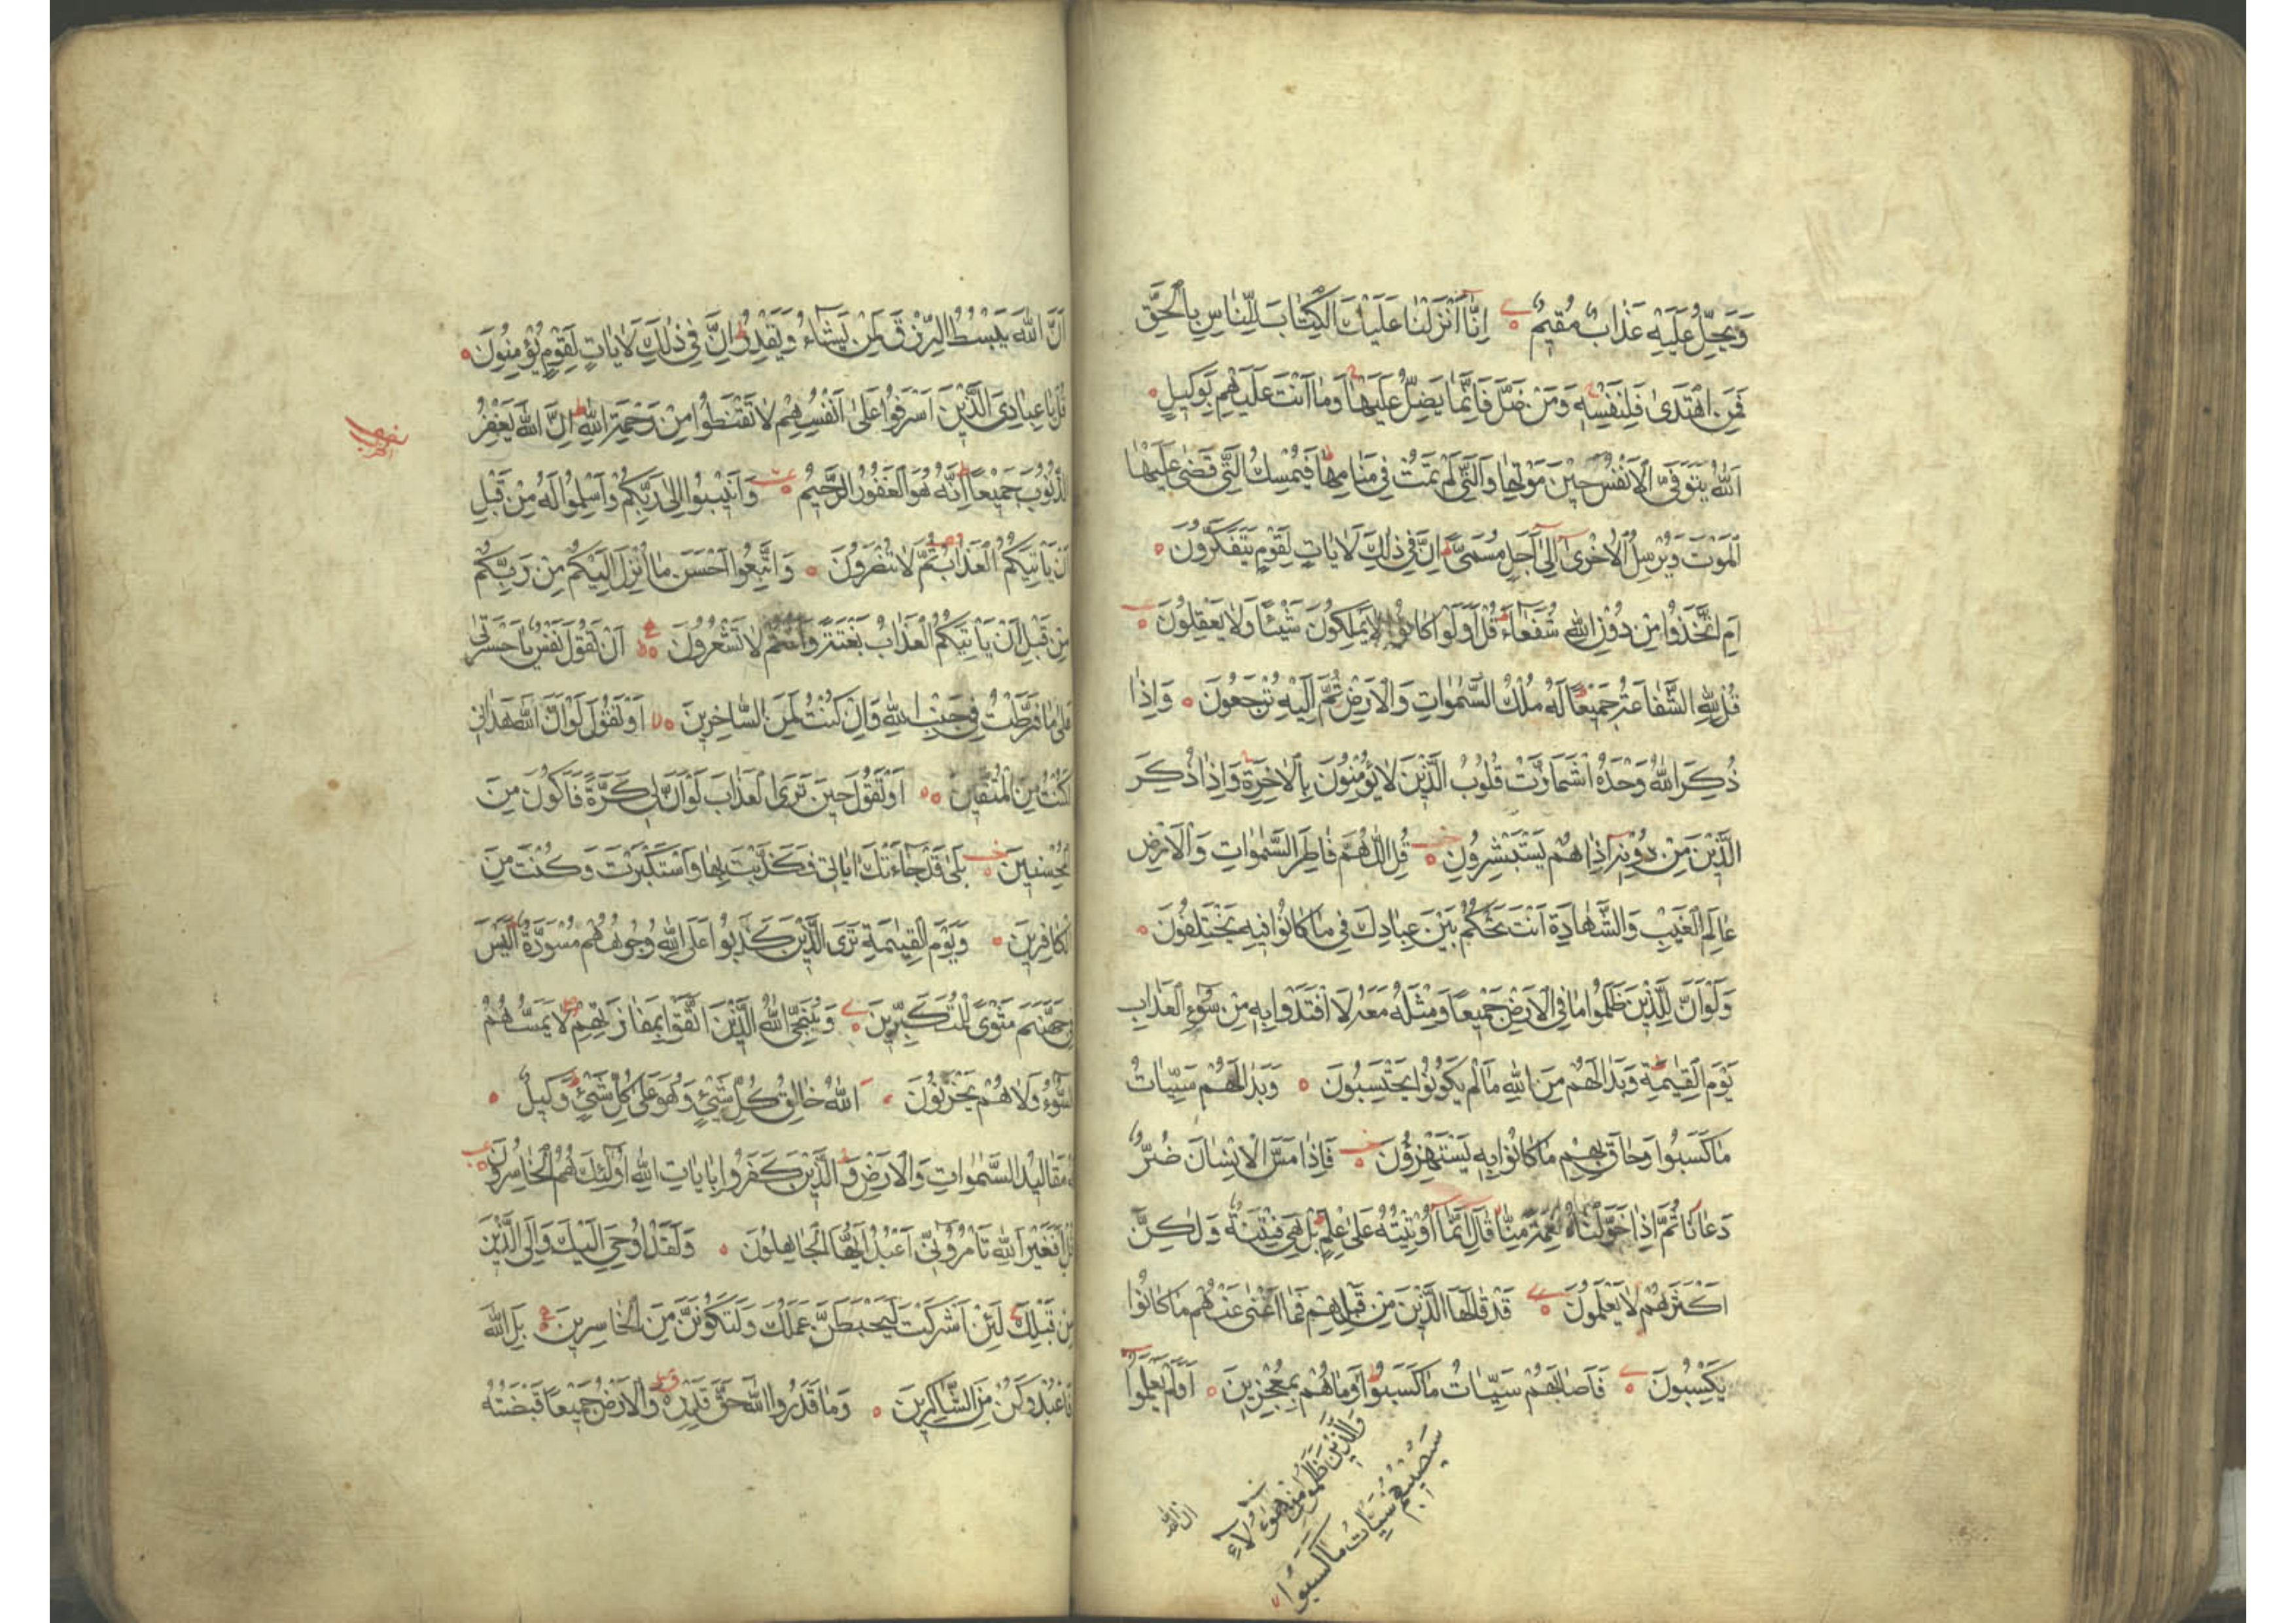 وَيَحِلُّ عَلَيْهِ عَذَابٌ مُقِيمٌ اِنَّا اَنْزَلْنَا عَلَيْكَ الْكِتَابَ لِلنَّاسِ بِالْحَقِّ
فَمَنِ اهْتَدٰى فَلِنَفْسِهِ وَمَنْ ضَلَّ فَاِنَّمَا يَضِلُّ عَلَيْهَا وَمَا اَنْتَ عَلَيْهِمْ بِوَكِيلٍ
اَللّٰهُ يَتَوَفَّى الْاَنْفُسَ حِينَ مَوْتِهَا وَالَّتِي لَمْ تَمُتْ فِي مَنَامِهَا فَيُمْسِكُ الَّتِي قَضٰى عَلَيْهَا
الْمَوْتَ وَيُرْسِلُ الْاُخْرٰى اِلٰى اَجَلٍ مُسَمًّى اِنَّ فِي ذٰلِكَ لَاٰيَاتٍ لِقَوْمٍ يَتَفَكَّرُونَ
اَمِ اتَّخَذُوا مِنْ دُونِ اللّٰهِ شُفَعَاءَ قُلْ اَوَلَوْ كَانُوا لَا يَمْلِكُونَ شَيْئًا وَلَا يَعْقِلُونَ
قُلْ لِلّٰهِ الشَّفَاعَةُ جَمِيعًا لَهُ مُلْكُ السَّمٰوَاتِ وَالْاَرْضِ ثُمَّ اِلَيْهِ تُرْجَعُونَ وَاِذَا
ذُكِرَ اللّٰهُ وَحْدَهُ اشْمَاَزَّتْ قُلُوبُ الَّذِينَ لَا يُؤْمِنُونَ بِالْاٰخِرَةِ وَاِذَا ذُكِرَ
الَّذِينَ مِنْ دُونِهِ اِذَا هُمْ يَسْتَبْشِرُونَ قُلِ اللّٰهُمَّ فَاطِرَ السَّمٰوَاتِ وَالْاَرْضِ
عَالِمَ الْغَيْبِ وَالشَّهَادَةِ اَنْتَ تَحْكُمُ بَيْنَ عِبَادِكَ فِي مَا كَانُوا فِيهِ يَخْتَلِفُونَ
وَلَوْ اَنَّ لِلَّذِينَ ظَلَمُوا مَا فِي الْاَرْضِ جَمِيعًا وَمِثْلَهُ مَعَهُ لَافْتَدَوْا بِهِ مِنْ سُوءِ الْعَذَابِ
يَوْمَ الْقِيٰمَةِ وَبَدَا لَهُمْ مِنَ اللّٰهِ مَا لَمْ يَكُونُوا يَحْتَسِبُونَ وَبَدَا لَهُمْ سَيِّئَاتُ
مَا كَسَبُوا وَحَاقَ بِهِمْ مَا كَانُوا بِهِ يَسْتَهْزِؤُنَ فَاِذَا مَسَّ الْاِنْسَانَ ضُرٌّ
دَعَانَا ثُمَّ اِذَا خَوَّلْنَاهُ نِعْمَةً مِنَّا قَالَ اِنَّمَا اُوتِيتُهُ عَلٰى عِلْمٍ بَلْ هِيَ فِتْنَةٌ وَلٰكِنَّ
اَكْثَرَهُمْ لَا يَعْلَمُونَ قَدْ قَالَهَا الَّذِينَ مِنْ قَبْلِهِمْ فَمَا اَغْنٰى عَنْهُمْ مَا كَانُوا
يَكْسِبُونَ فَاَصَابَهُمْ سَيِّئَاتُ مَا كَسَبُوا وَمَا هُمْ بِمُعْجِزِينَ اَوَلَمْ يَعْلَمُوا
وَالَّذِينَ ظَلَمُوا مِنْ هٰؤُلَاءِ
سَيُصِيبُهُمْ سَيِّئَاتُ مَا كَسَبُوا
ان الله
اَنَّ اللّٰهَ يَبْسُطُ الرِّزْقَ لِمَنْ يَشَاءُ وَيَقْدِرُ اِنَّ فِي ذٰلِكَ لَاٰيَاتٍ لِقَوْمٍ يُؤْمِنُونَ
قُلْ يَا عِبَادِيَ الَّذِينَ اَسْرَفُوا عَلٰى اَنْفُسِهِمْ لَا تَقْنَطُوا مِنْ رَحْمَةِ اللّٰهِ اِنَّ اللّٰهَ يَغْفِرُ
الذُّنُوبَ جَمِيعًا اِنَّهُ هُوَ الْغَفُورُ الرَّحِيمُ وَاَنِيبُوا اِلٰى رَبِّكُمْ وَاَسْلِمُوا لَهُ مِنْ قَبْلِ
اَنْ يَاْتِيَكُمُ الْعَذَابُ ثُمَّ لَا تُنْصَرُونَ وَاتَّبِعُوا اَحْسَنَ مَا اُنْزِلَ اِلَيْكُمْ مِنْ رَبِّكُمْ
مِنْ قَبْلِ اَنْ يَاْتِيَكُمُ الْعَذَابُ بَغْتَةً وَاَنْتُمْ لَا تَشْعُرُونَ اَنْ تَقُولَ نَفْسٌ يَا حَسْرَتٰى
عَلٰى مَا فَرَّطْتُ فِي جَنْبِ اللّٰهِ وَاِنْ كُنْتُ لَمِنَ السَّاخِرِينَ اَوْ تَقُولَ لَوْ اَنَّ اللّٰهَ هَدَانِي
لَكُنْتُ مِنَ الْمُتَّقِينَ اَوْ تَقُولَ حِينَ تَرَى الْعَذَابَ لَوْ اَنَّ لِي كَرَّةً فَاَكُونَ مِنَ
الْمُحْسِنِينَ بَلٰى قَدْ جَاءَتْكَ اٰيَاتِي فَكَذَّبْتَ بِهَا وَاسْتَكْبَرْتَ وَكُنْتَ مِنَ
الْكَافِرِينَ وَيَوْمَ الْقِيٰمَةِ تَرَى الَّذِينَ كَذَبُوا عَلَى اللّٰهِ وُجُوهُهُمْ مُسْوَدَّةٌ اَلَيْسَ
فِي جَهَنَّمَ مَثْوًى لِلْمُتَكَبِّرِينَ وَيُنَجِّي اللّٰهُ الَّذِينَ اتَّقَوْا بِمَفَازَتِهِمْ لَا يَمَسُّهُمُ
السُّوءُ وَلَا هُمْ يَحْزَنُونَ اَللّٰهُ خَالِقُ كُلِّ شَيْءٍ وَهُوَ عَلٰى كُلِّ شَيْءٍ وَكِيلٌ
لَهُ مَقَالِيدُ السَّمٰوَاتِ وَالْاَرْضِ وَالَّذِينَ كَفَرُوا بِاٰيَاتِ اللّٰهِ اُولٰئِكَ هُمُ الْخَاسِرُونَ
قُلْ اَفَغَيْرَ اللّٰهِ تَاْمُرُونِّي اَعْبُدُ اَيُّهَا الْجَاهِلُونَ وَلَقَدْ اُوحِيَ اِلَيْكَ وَاِلَى الَّذِينَ
مِنْ قَبْلِكَ لَئِنْ اَشْرَكْتَ لَيَحْبَطَنَّ عَمَلُكَ وَلَتَكُونَنَّ مِنَ الْخَاسِرِينَ بَلِ اللّٰهَ
فَاعْبُدْ وَكُنْ مِنَ الشَّاكِرِينَ وَمَا قَدَرُوا اللّٰهَ حَقَّ قَدْرِهِ وَالْاَرْضُ جَمِيعًا قَبْضَتُهُ